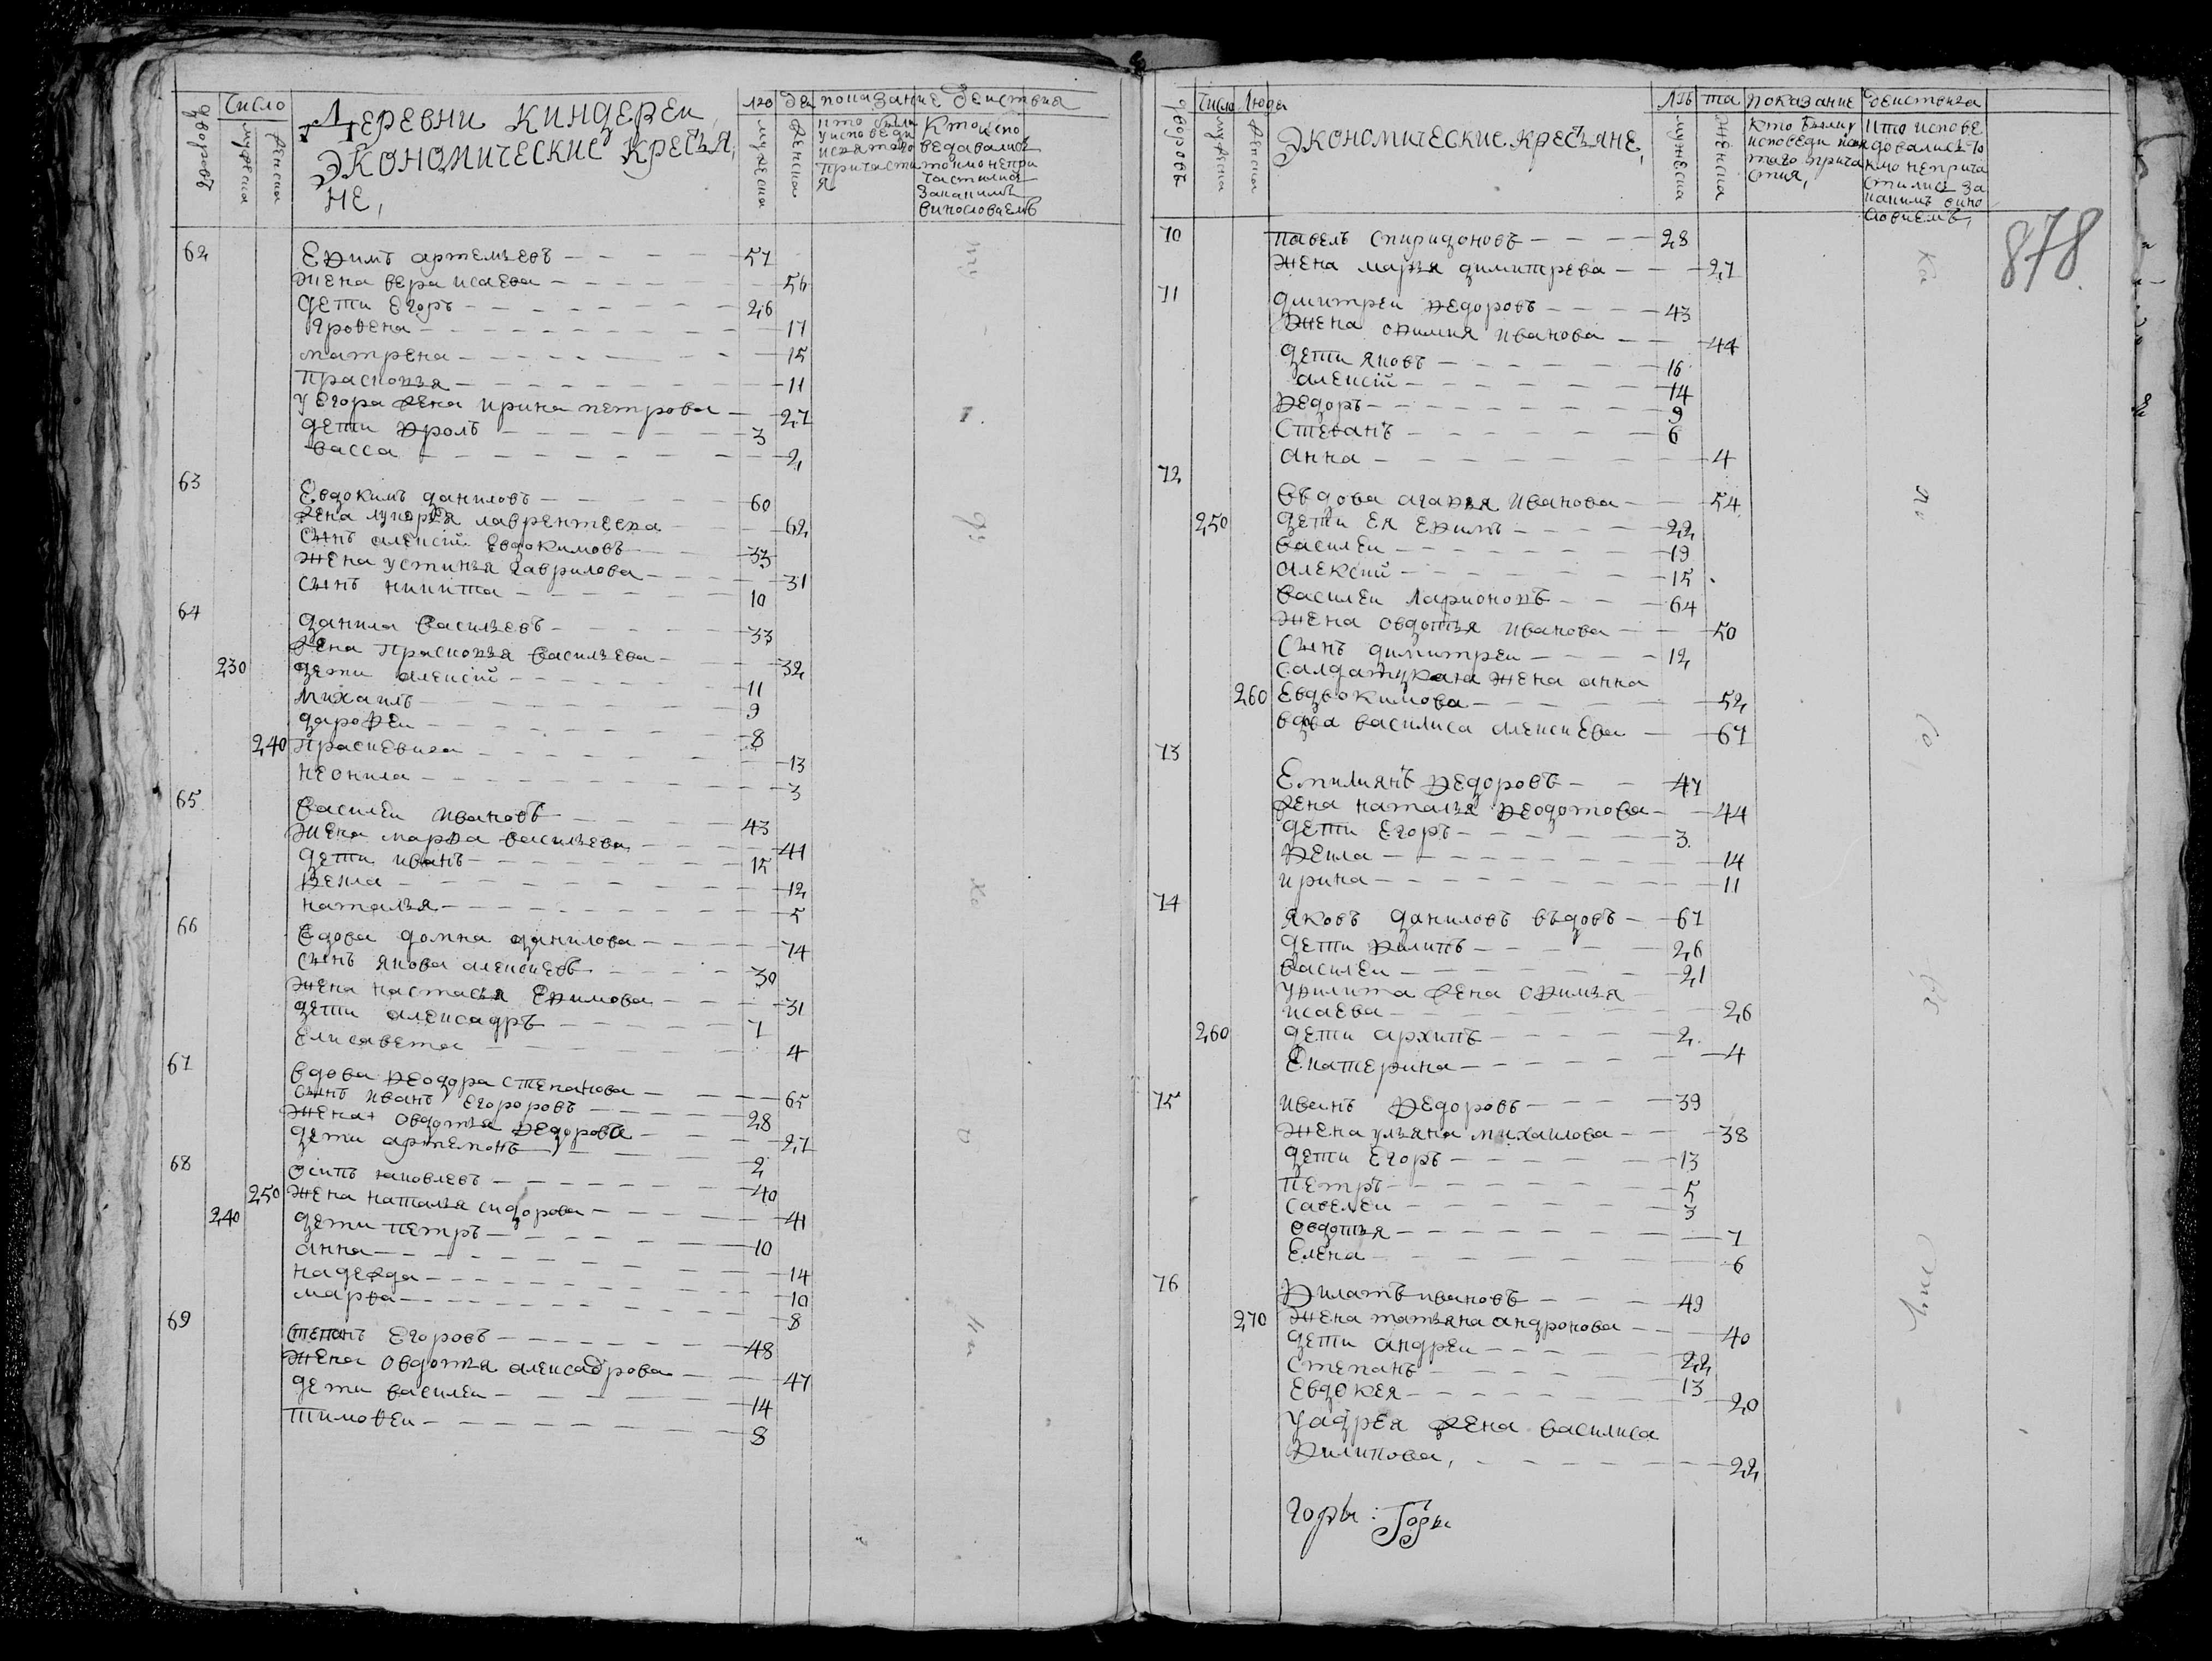 Число
дворовъ
мужеска
женска
Деревни Киндереи
Экономические кресья,
не,
мужеска
женска
показание действия
кто были
у исповеди
и святаго
причасти
я
Кто испо
ведавалис
токмо непри
частилис
за каким
винословаемъ
62 Ефимъ артемьевъ 57
жена вера исаева 56
дети Егоръ 26
Ѳровена 17
матрена 15
Прасковья 11
у Егора жена ирина петрова 27
дети Фролъ 3
васса 2
63 Евдокимъ даниловъ 60
жена лукерья лаврентеева 62
сынъ алексій Евдокимовъ 33
жена устинья гаврилова 31
сынъ никита 10
64 данила васильевъ 33
жена Прасковья васильева 32
230 дети алексій 11
Михаилъ 9
дарофеи 8
240 Праскевига 13
неонила 3
65 василеи ивановъ 43
жена марфа васильева 41
дети иванъ 15
Фекла 12
наталья 5
66 вдова домна данилова 74
сынъ якова алексиевъ 30
жена настасья Ефимова 31
дети алексадръ 7
Елисавета 4
67 вдова Феодора степанова 65
сынъ иванъ Егороровъ 28
жена овдотья Федорова 27
дети артемонъ 2
68 осипъ яковлевъ 40
250 жена наталья сидорова 41
240 дети петръ 10
анна 14
надежда 10
марѳа 8
69 степанъ Егоровъ 48
жена овдотья алексадрова 47
дети василеи 14
тимоѳеи 8
дворовъ
Число Люди
мужеска
женска
Экономические кресьяне,
Лѣ та
мужеска
женска
показание действига
кто были у
исповеди исвя
таго прича
стия,
кто испове
довались то
кмо неприча
стились за
каким вино
ловиемъ,
878.
70 павелъ спиридоновъ 28
жена марья димитрева 27
71 дмитреи Федоровъ 43
жена офимия иванова 44
дети яковъ 16
алексій 14
Федоръ 9
Стеѳанъ 6
анна 4
72 въдова агафья иванова 54
250 дети ея Ефимъ 22
василеи 19
алексій 15
василеи ларионовъ 64
жена овдотья иванова 50
Сынъ димитреи 12
салдатцкая жена анна
260 Евдокимова 52
вдва василиса алексиева 67
73 Емилиянъ Федоровъ 47
жена наталья Феодотова 44
дети Егоръ 3
Фекла 14
ирина 11
74 яковъ даниловъ въдовъ 67
дети Филипъ 26
василеи 21
у филипа жена офимья
исаева 26
260 дети архипъ 2
Екатерина 4
75 иванъ Федоровъ 39
жена ульяна михаилова 38
дети Егоръ 13
петръ 5
савелеи 3
овдотья 7
Елена 6
76 Филатъ ивановъ 49
270 жена татьяна андронова 40
дети андреи 22
степанъ 13
Евдокея 20
у адрея жена василиса
Филипова, 22
горы : Горы